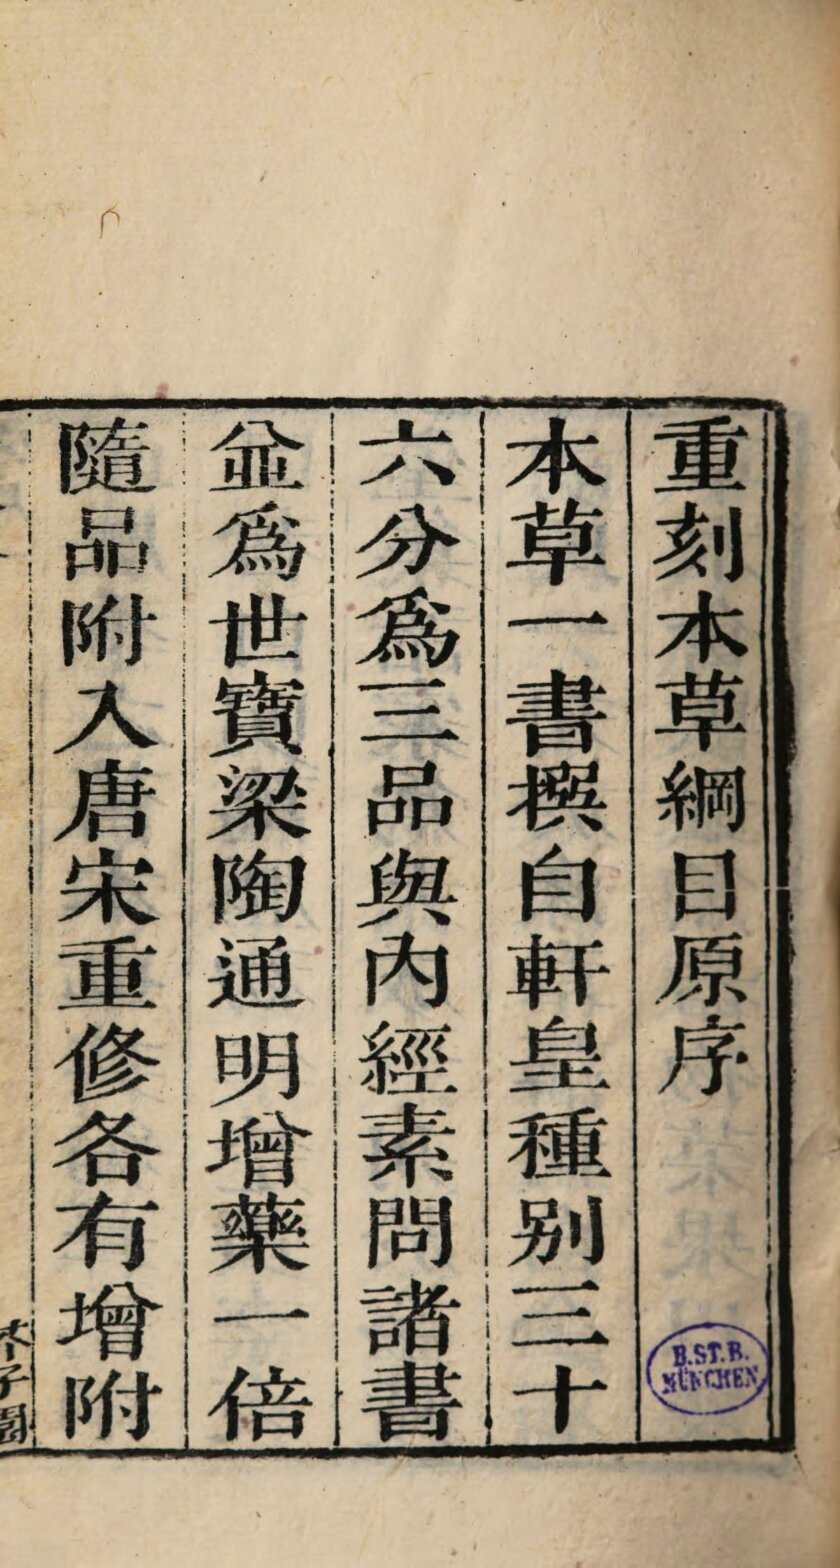 重刻本草綱目原序
本草一書撰自軒皇種别三十
六分爲三品與內經素問諸書
並爲世寶梁陶通明增藥一倍
隨品附入唐宋重修各有增附
芥子園
B.ST.B.
MÜNCHEN